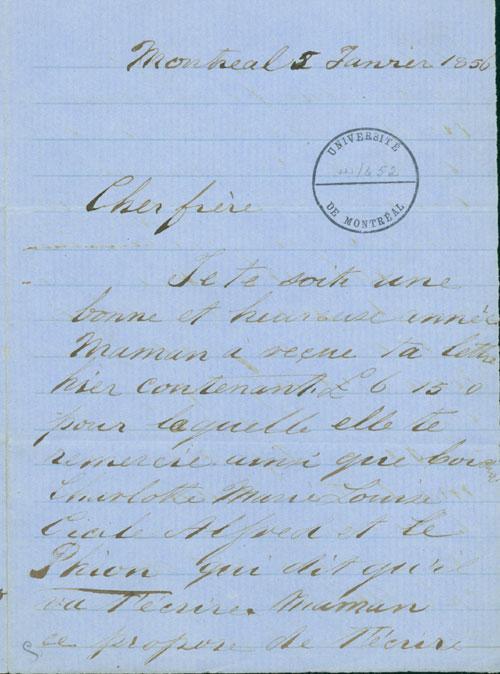 Montreal 5 Janvier 1856
UNIVERSITÉ
DE MONTRÉAL
Cher frère
Je te soite une
bonne et heureuse année
Maman à reçue ta lettre
hier contenant £ 6 15 0
pour laquelle elle te
remercie ainsi que
Charlotte Marie Louise
Alfred et le
Phion qui dit qu'il
va t'écrire. Maman
ce propose de t'écrire